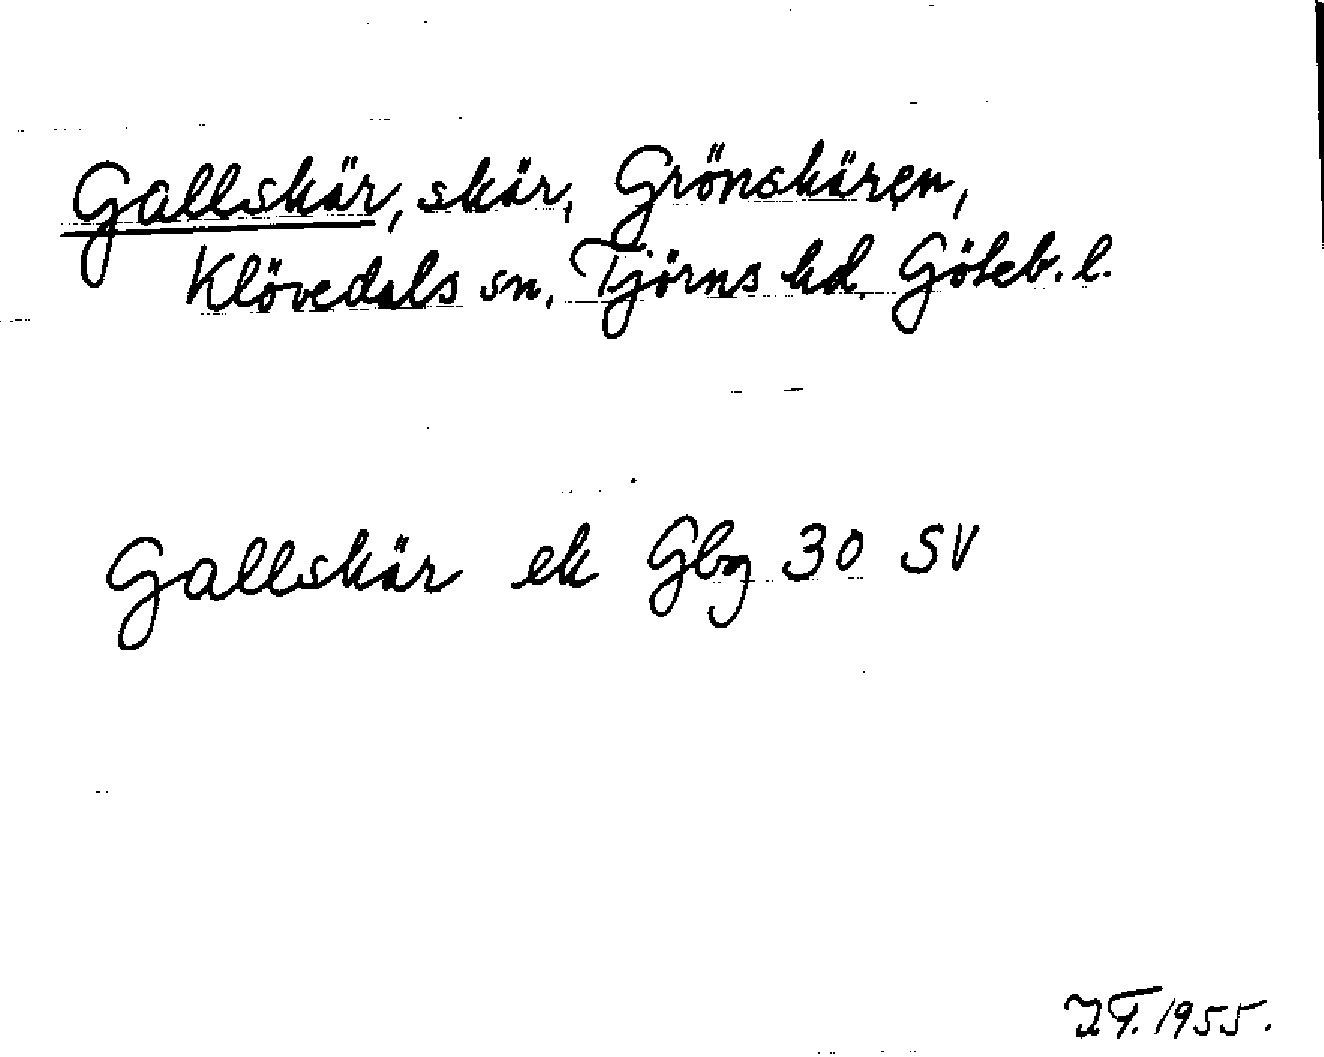 Gallskär, skär, Grönskären,
Klövedals sn, Tjörns hd, Göteb. l.
Gallskär ek Gbg 30 SV
1955.